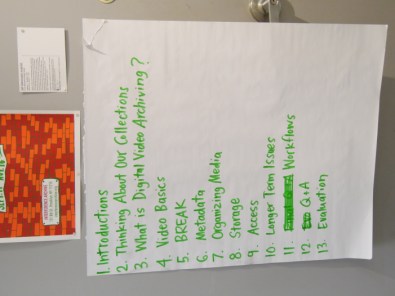 1. Introductions
2. Thinking About Our Collections
3. What is Digital Video Archiving?
4. Video Basics
5. BREAK
6. Metadata
7. Organizing Media
8. Storage
9. Access
10. Longer Term Issues
11. Workflows
12. Q+A
13. Evaluation